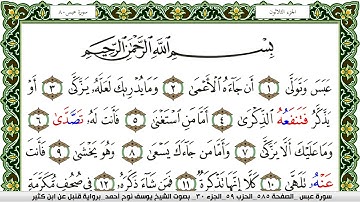 الجزء الثلاثون
سورة عبس ٨٠
بِسْمِ اللَّهِ الرَّحْمَٰنِ الرَّحِيمِ
عَبَسَ وَتَوَلَّىٰ ١ أَن جَآءَهُ الْأَعْمَىٰ ٢ وَمَا يُدْرِيكَ لَعَلَّهُۥ يَزَّكَّىٰ ٣ أَوْ
يَذَّكَّرُ فَتَنفَعُهُ الذِّكْرَىٰ ٤ أَمَّا مَنِ اسْتَغْنَىٰ ٥ فَأَنتَ لَهُۥ تَصَّدَّىٰ ٦
وَمَا عَلَيْكَ أَلَّا يَزَّكَّىٰ ٧ وَأَمَّا مَن جَآءَكَ يَسْعَىٰ ٨ وَهُوَ يَخْشَىٰ ٩ فَأَنتَ
عَنْهُۥ تَلَهَّىٰ ١٠ كَلَّآ إِنَّهَا تَذْكِرَةٌ ١١ فَمَن شَآءَ ذَكَرَهُۥ ١٢ فِي صُحُفٍ مُّكَرَّمَةٍ
سورة عبس _ الصفحة ٥٨٥ _ الحزب ٥٩ _ الجزء ٣٠ _ بصوت الشيخ يوسف نوح أحمد _ برواية قنبل عن ابن كثير